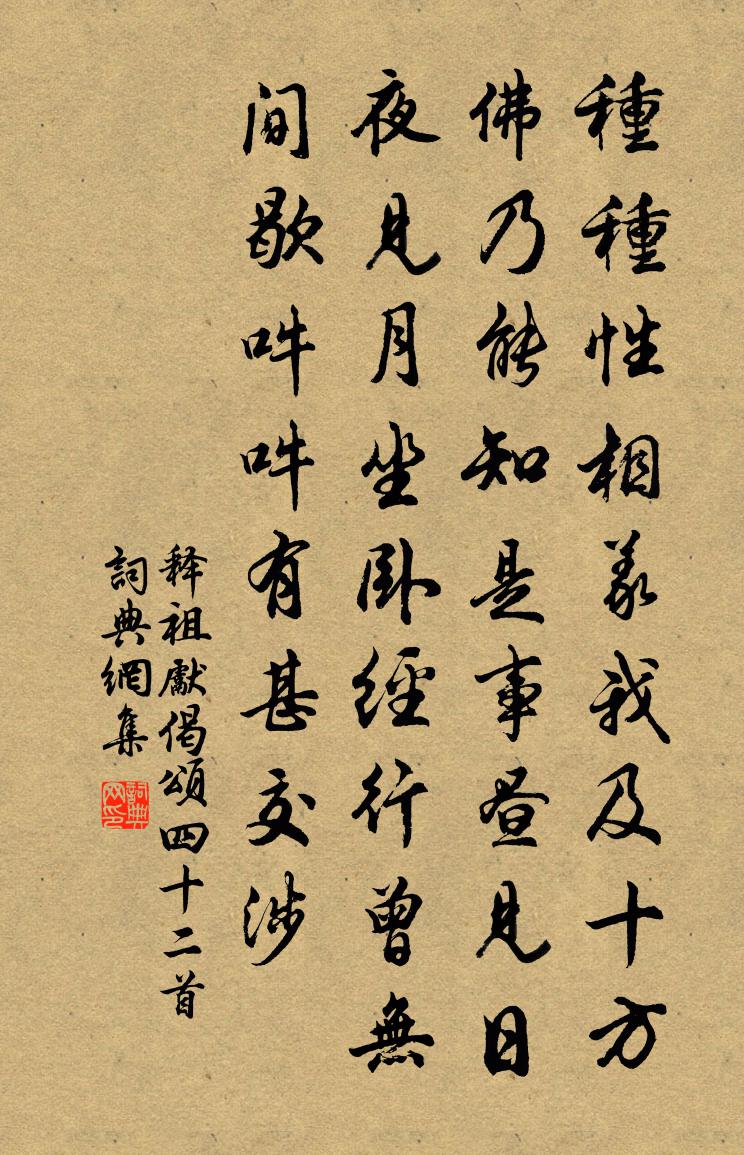 種種性相義我及十方
佛乃能知是事昼見日
夜見月坐卧經行曾無
间歇吽吽有甚交涉
释祖獻偈頌四十二首
詞典網集
詞典网印